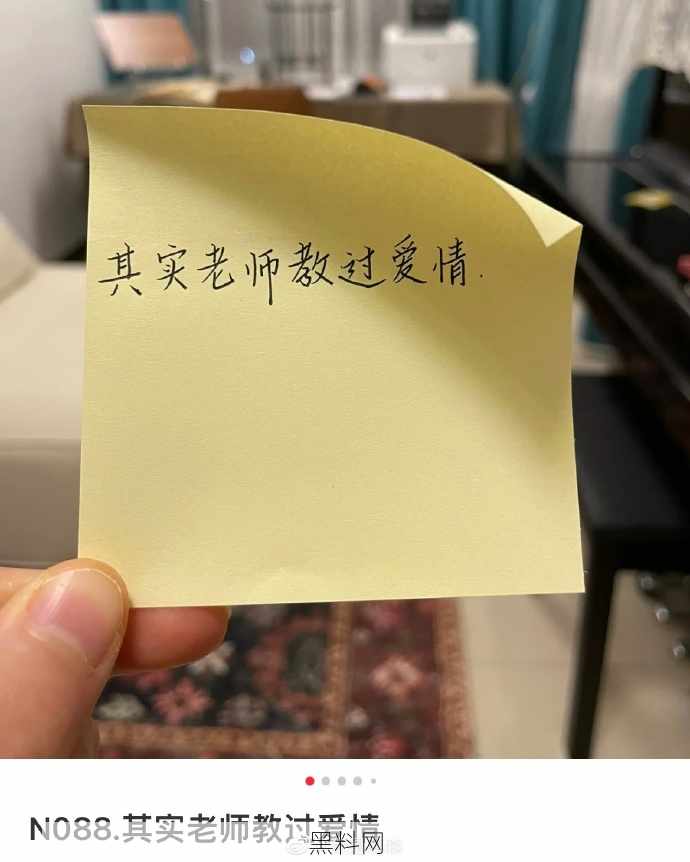 其实老师教过爱情.
N088.其实老师教过爱情
黑料网